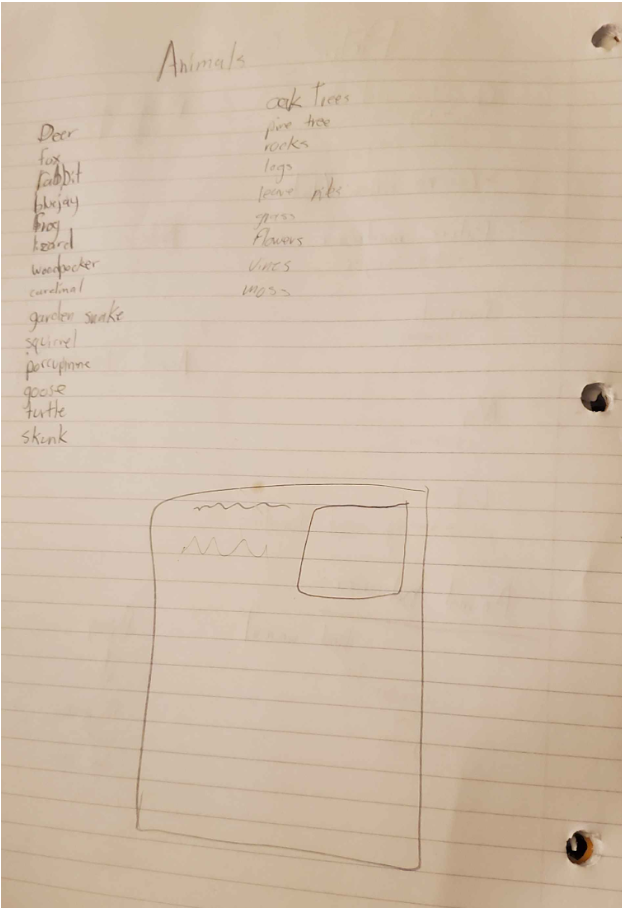 Animals
Deer
fox
rabbit
bluejay
frog
lizard
woodpecker
cardinal
garden snake
squirrel
porcupine
goose
turtle
skunk
oak Trees
pine tree
rocks
logs
leave piles
grass
flowers
vines
moss